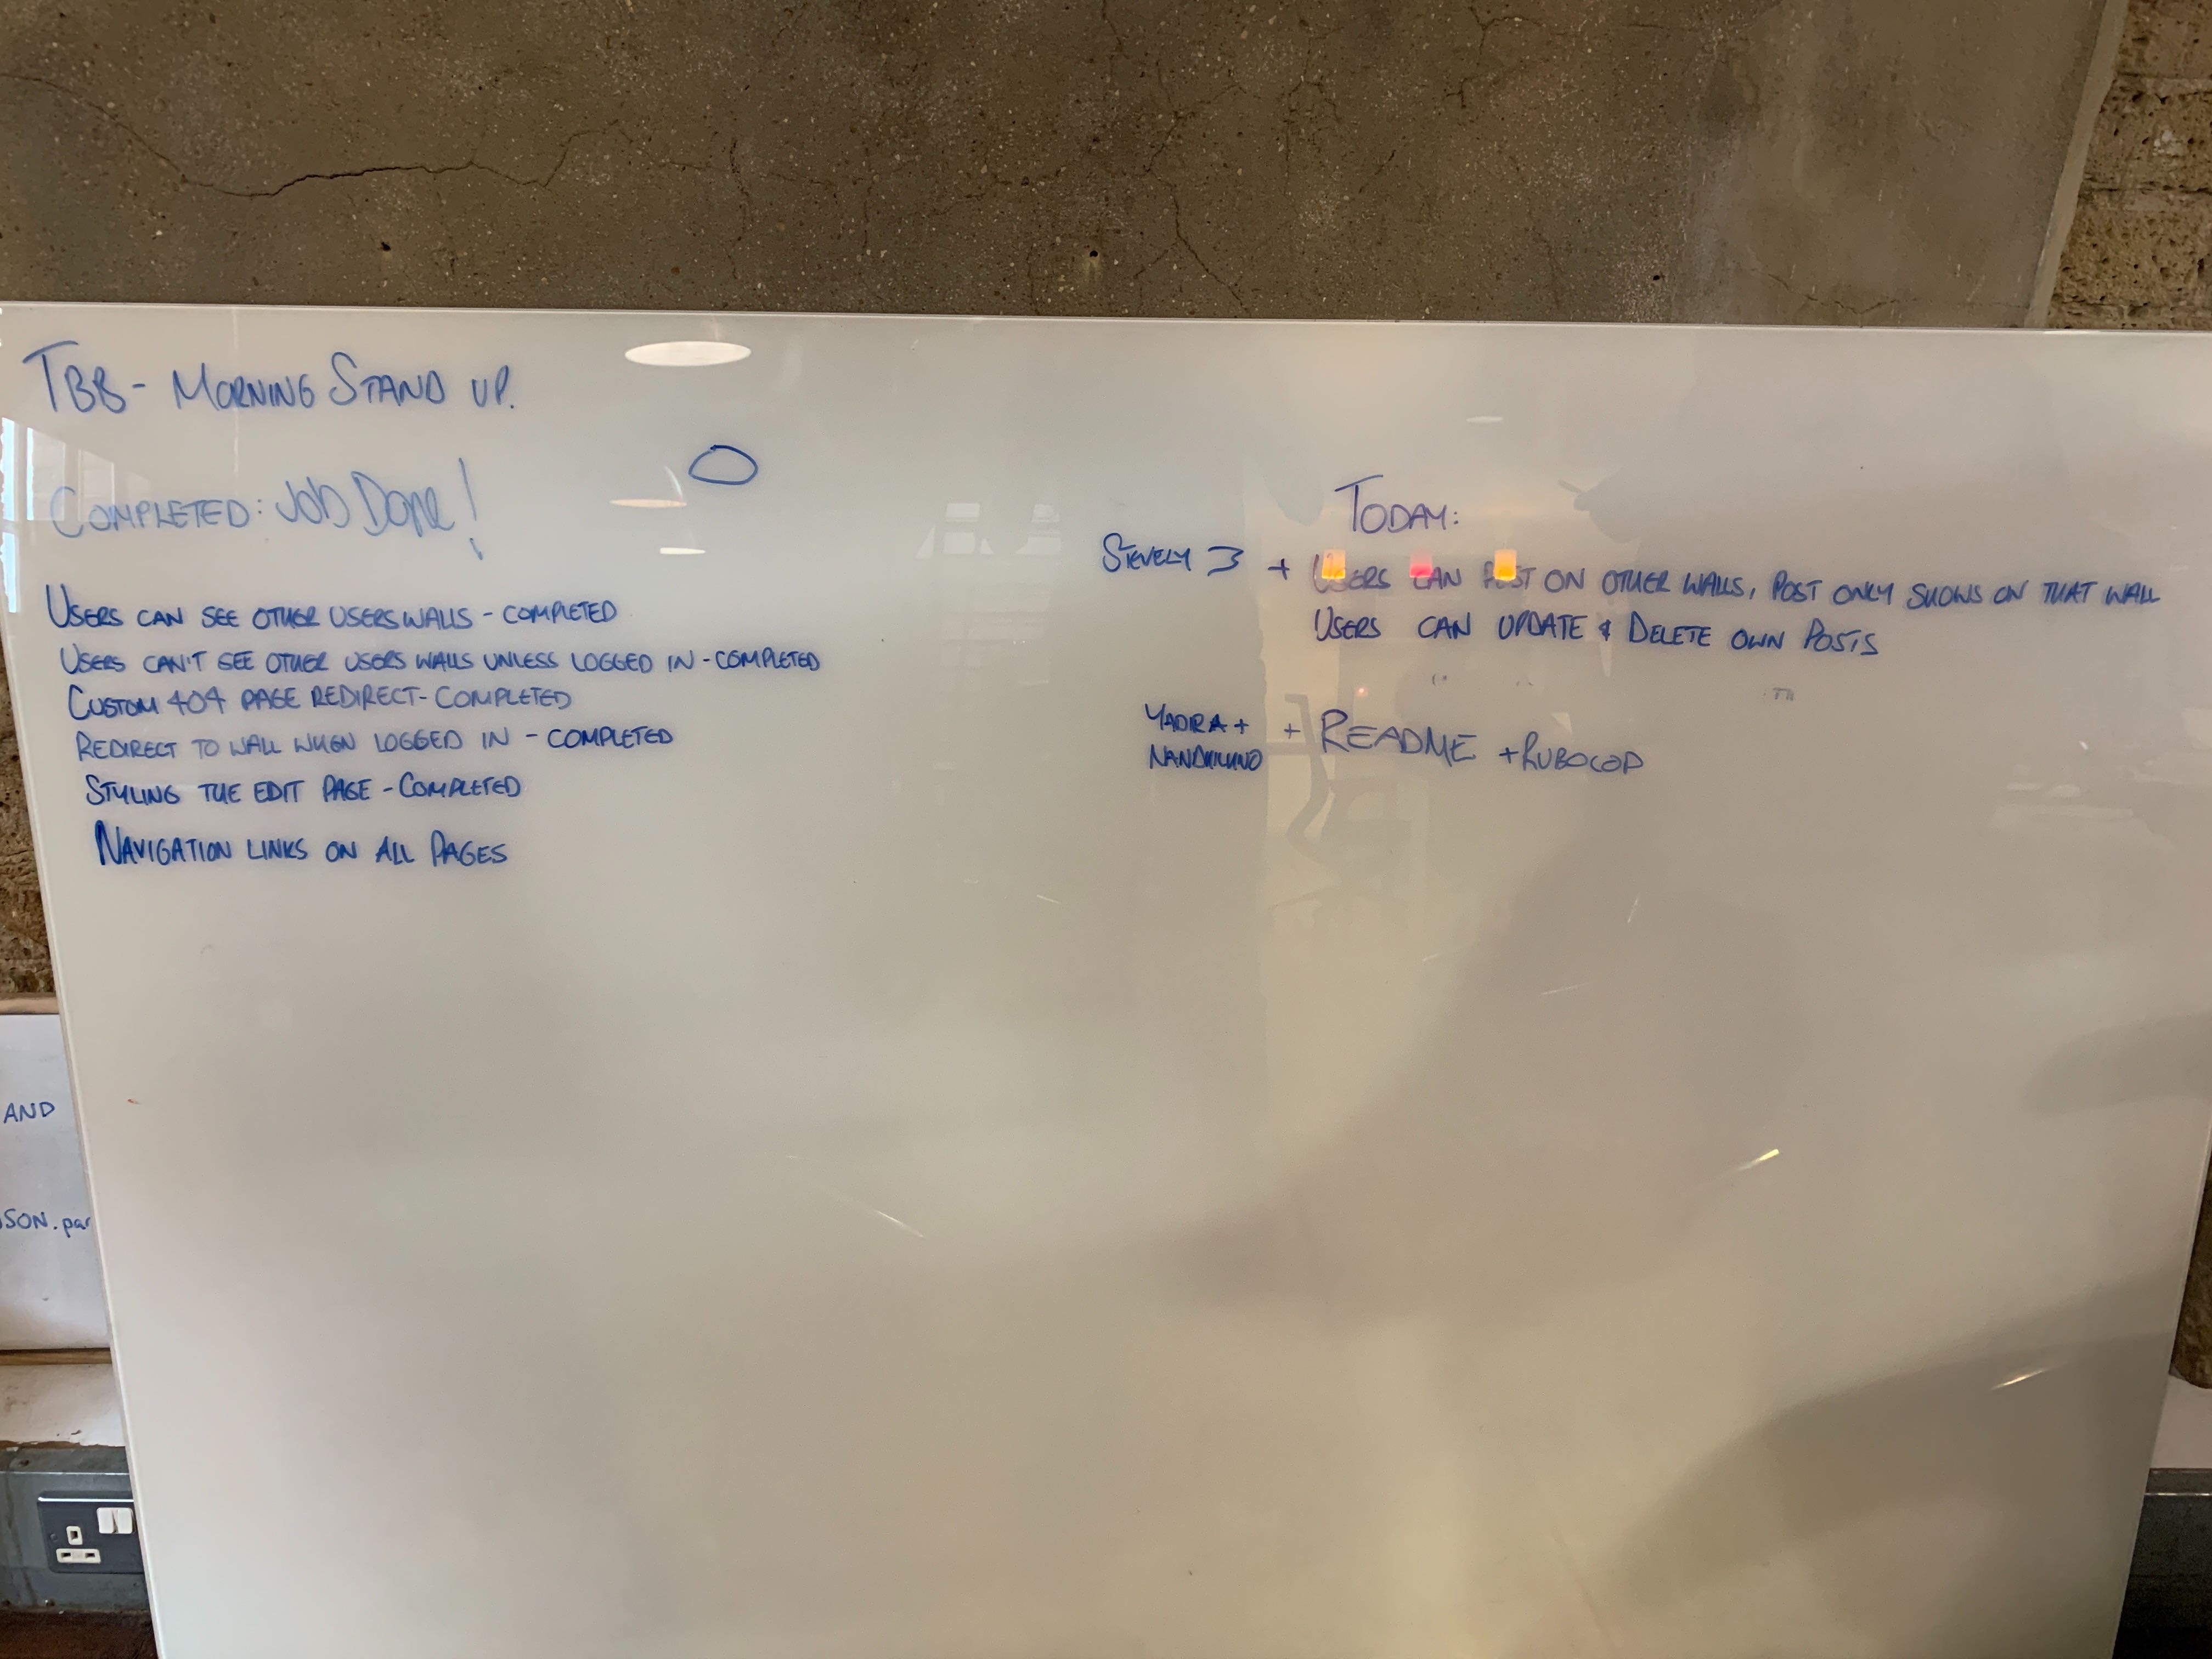 TBB - MORNING STAND UP.
COMPLETED: JOB DONE!
USERS CAN SEE OTHER USERS WALLS - COMPLETED
USERS CAN'T SEE OTHER USERS WALLS UNLESS LOGGED IN - COMPLETED
CUSTOM 404 PAGE REDIRECT - COMPLETED
REDIRECT TO WALL WHEN LOGGED IN - COMPLETED
STYLING THE EDIT PAGE - COMPLETED
NAVIGATION LINKS ON ALL PAGES
TODAY:
+ USERS CAN POST ON OTHER WALLS, POST ONLY SHOWS ON THAT WALL
USERS CAN UPDATE & DELETE OWN POSTS
+ README + RUBOCOP
AND
SON.par